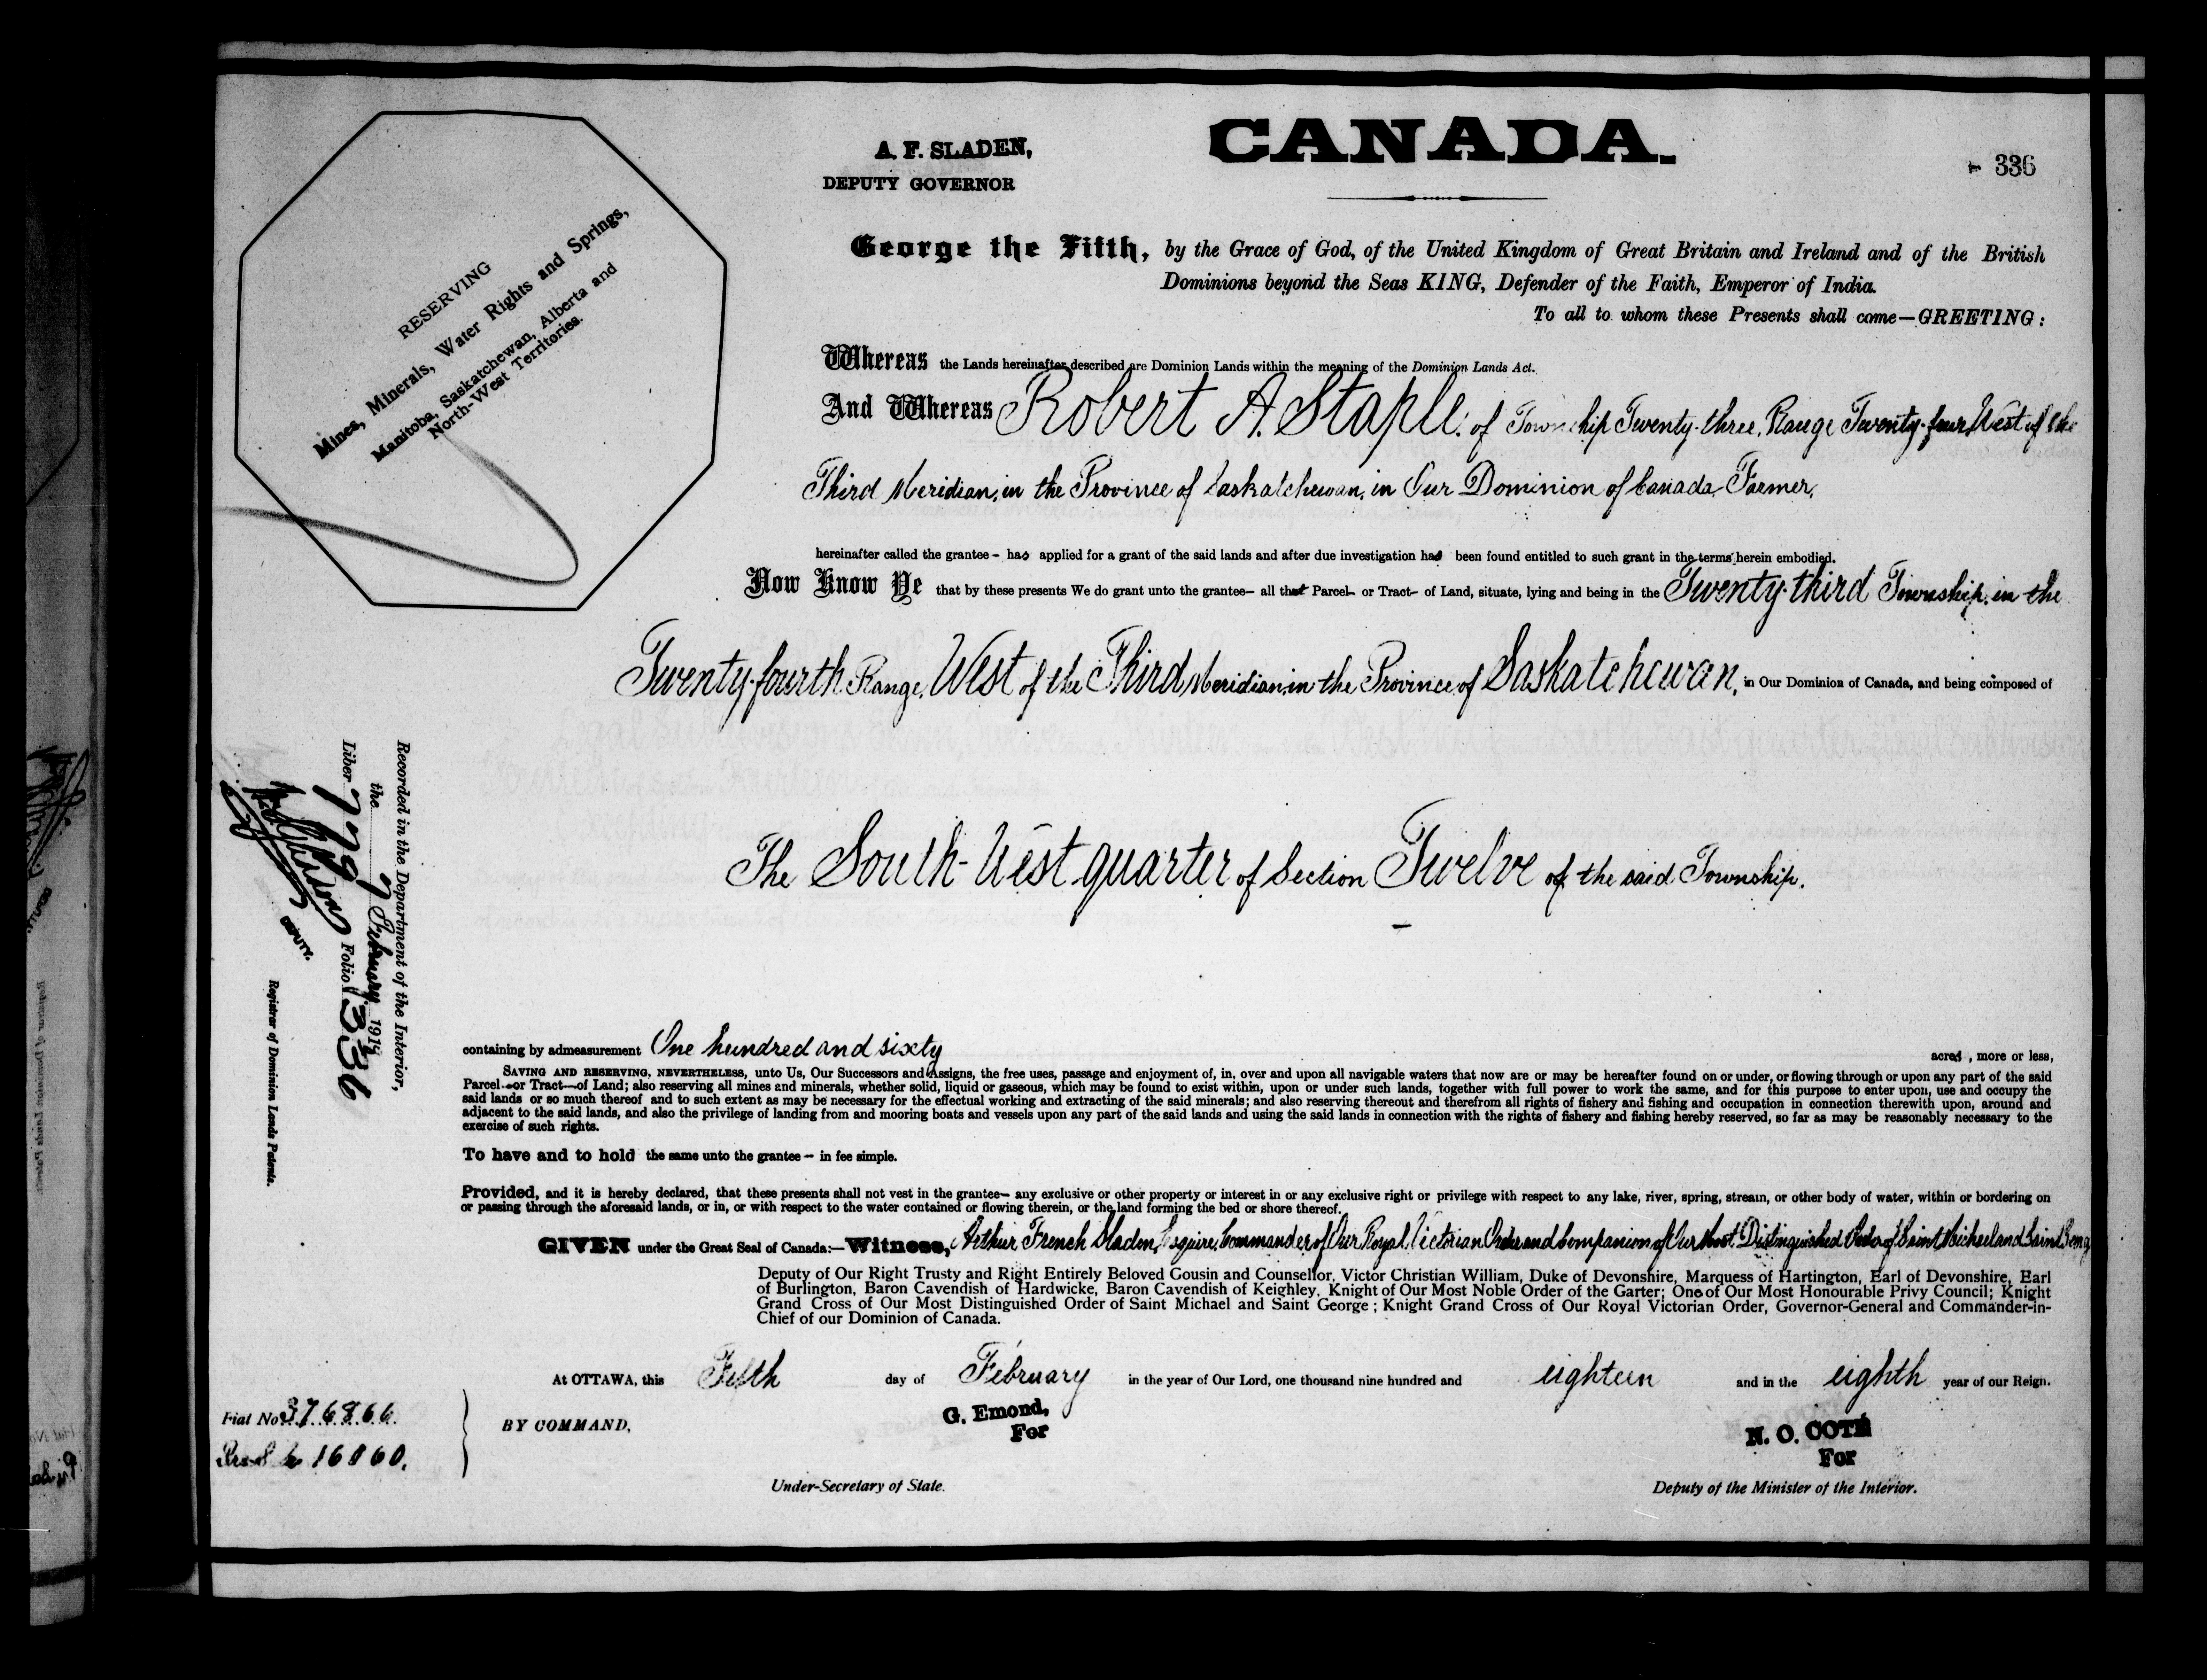 CANADA.
A. F. SLADEN,
DEPUTY GOVERNOR
336
RESERVING
Mines, Minerals, Water Rights and Springs,
Manitoba, Saskatchewan, Alberta and
North-West Territories.
George the Fifth, by the Grace of God, of the United Kingdom of Great Britain and Ireland and of the British
Dominions beyond the Seas KING, Defender of the Faith, Emperor of India.
To all to whom these Presents shall come—GREETING:
Whereas the Lands hereinafter described are Dominion Lands within the meaning of the Dominion Lands Act.
And Whereas Robert A. Staple of Township Twenty-three, Range Twenty-four West of the
Third Meridian, in the Province of Saskatchewan, in Our Dominion of Canada, Farmer,
hereinafter called the grantee – has applied for a grant of the said lands and after due investigation has been found entitled to such grant in the terms herein embodied.
Now Know Ye that by these presents We do grant unto the grantee– all that Parcel– or Tract– of Land, situate, lying and being in the Twenty-third Township, in the
Twenty-fourth Range, West of the Third Meridian, in the Province of Saskatchewan, in Our Dominion of Canada, and being composed of
The South-West quarter of Section Twelve of the said Township.
Recorded in the Department of the Interior,
the 7 February 1918
Liber 779 Folio 336
DEPUTY.
Registrar of Dominion Lands Patents.
containing by admeasurement One hundred and sixty acres, more or less,
SAVING AND RESERVING, NEVERTHELESS, unto Us, Our Successors and Assigns, the free uses, passage and enjoyment of, in, over and upon all navigable waters that now are or may be hereafter found on or under, or flowing through or upon any part of the said
Parcel–or Tract–of Land; also reserving all mines and minerals, whether solid, liquid or gaseous, which may be found to exist within, upon or under such lands, together with full power to work the same, and for this purpose to enter upon, use and occupy the
said lands or so much thereof and to such extent as may be necessary for the effectual working and extracting of the said minerals; and also reserving thereout and therefrom all rights of fishery and fishing and occupation in connection therewith upon, around and
adjacent to the said lands, and also the privilege of landing from and mooring boats and vessels upon any part of the said lands and using the said lands in connection with the rights of fishery and fishing hereby reserved, so far as may be reasonably necessary to the
exercise of such rights.
To have and to hold the same unto the grantee – in fee simple.
Provided, and it is hereby declared, that these presents shall not vest in the grantee– any exclusive or other property or interest in or any exclusive right or privilege with respect to any lake, river, spring, stream, or other body of water, within or bordering on
or passing through the aforesaid lands, or in, or with respect to the water contained or flowing therein, or the land forming the bed or shore thereof.
GIVEN under the Great Seal of Canada:—Witness, Arthur French Sladen, Esquire, Commander of Our Royal Victorian Order and Companion of Our Most Distinguished Order of Saint Michael and Saint George
Deputy of Our Right Trusty and Right Entirely Beloved Cousin and Counsellor, Victor Christian William, Duke of Devonshire, Marquess of Hartington, Earl of Devonshire, Earl
of Burlington, Baron Cavendish of Hardwicke, Baron Cavendish of Keighley, Knight of Our Most Noble Order of the Garter; One of Our Most Honourable Privy Council; Knight
Grand Cross of Our Most Distinguished Order of Saint Michael and Saint George; Knight Grand Cross of Our Royal Victorian Order, Governor-General and Commander-in-
Chief of our Dominion of Canada.
At OTTAWA, this Fifth day of February in the year of Our Lord, one thousand nine hundred and eighteen and in the eighth year of our Reign.
Fiat No 376866.
16860.
BY COMMAND,
G. Emond,
For
Under-Secretary of State.
N. O. COTÉ
For
Deputy of the Minister of the Interior.